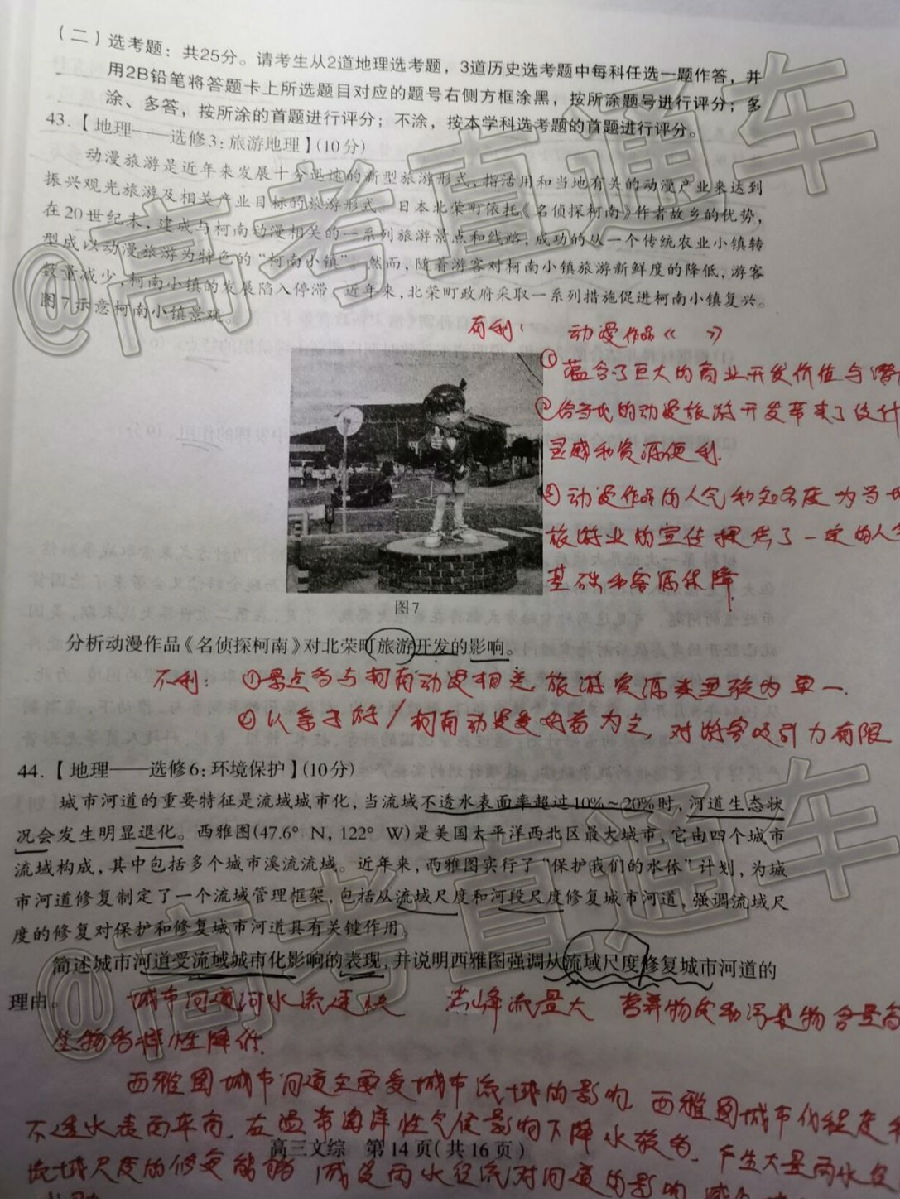 （二）选考题：共25分。请考生从2道地理选考题，3道历史选考题中每科任选一题作答，并
用2B铅笔将答题卡上所选题目对应的题号右侧方框涂黑，按所涂题号进行评分；多
涂、多答，按所涂的首题进行评分；不涂，按本学科选考题的首题进行评分。
43.【地理——选修3：旅游地理】(10分)
动漫旅游是近年来发展十分迅速的新型旅游形式，指活用和当地有关的动漫产业来达到
振兴观光旅游及相关产业目标的旅游形式。日本北荣町依托《名侦探柯南》作者故乡的优势，
在20世纪末，建成与柯南动漫相关的一系列旅游景点和线路，成功的从一个传统农业小镇转
型成以动漫旅游为特色的“柯南小镇”。然而，随着游客对柯南小镇旅游新鲜度的降低，游客
数量减少，柯南小镇的发展陷入停滞。近年来，北荣町政府采取一系列措施促进柯南小镇复兴。
图7示意柯南小镇景观。
@高考直通车
有利： 动漫作品《 》
① 蕴含了巨大的商业开发价值与潜
② 给当地的动漫旅游开发带来了设计
灵感和资源便利.
③ 动漫作品的人气和知名度为当地
旅游业的宣传提供了一定的人气
基础和客源保障
图7
分析动漫作品《名侦探柯南》对北荣町旅游开发的影响。
不利： ①景点多与柯南动漫相关 旅游资源类型较为单一.
② 以亲子游/柯南动漫爱好者为主, 对游客吸引力有限
44.【地理——选修6：环境保护】(10分)
城市河道的重要特征是流域城市化，当流域不透水表面率超过10%~20%时，河道生态状
况会发生明显退化。西雅图(47.6° N，122° W)是美国太平洋西北区最大城市，它由四个城市
流域构成，其中包括多个城市溪流流域。近年来，西雅图实行了“保护我们的水体”计划，为城
市河道修复制定了一个流域管理框架，包括从流域尺度和河段尺度修复城市河道，强调流域尺
度的修复对保护和修复城市河道具有关键作用。
@高考直通车
简述城市河道受流域城市化影响的表现，并说明西雅图强调从流域尺度修复城市河道的
理由。
城市河道河水流速快 洪峰流量大 营养物质和污染物含量高
生物多样性降低.
西雅图城市河道主要受城市流域的影响, 西雅图城市化程度
不透水表面率高, 在温带海洋性气候影响下降水较多, 产生大量雨水径
高三文综 第14页(共16页)
流域尺度的修复能够 减受雨水径流对河道的影响